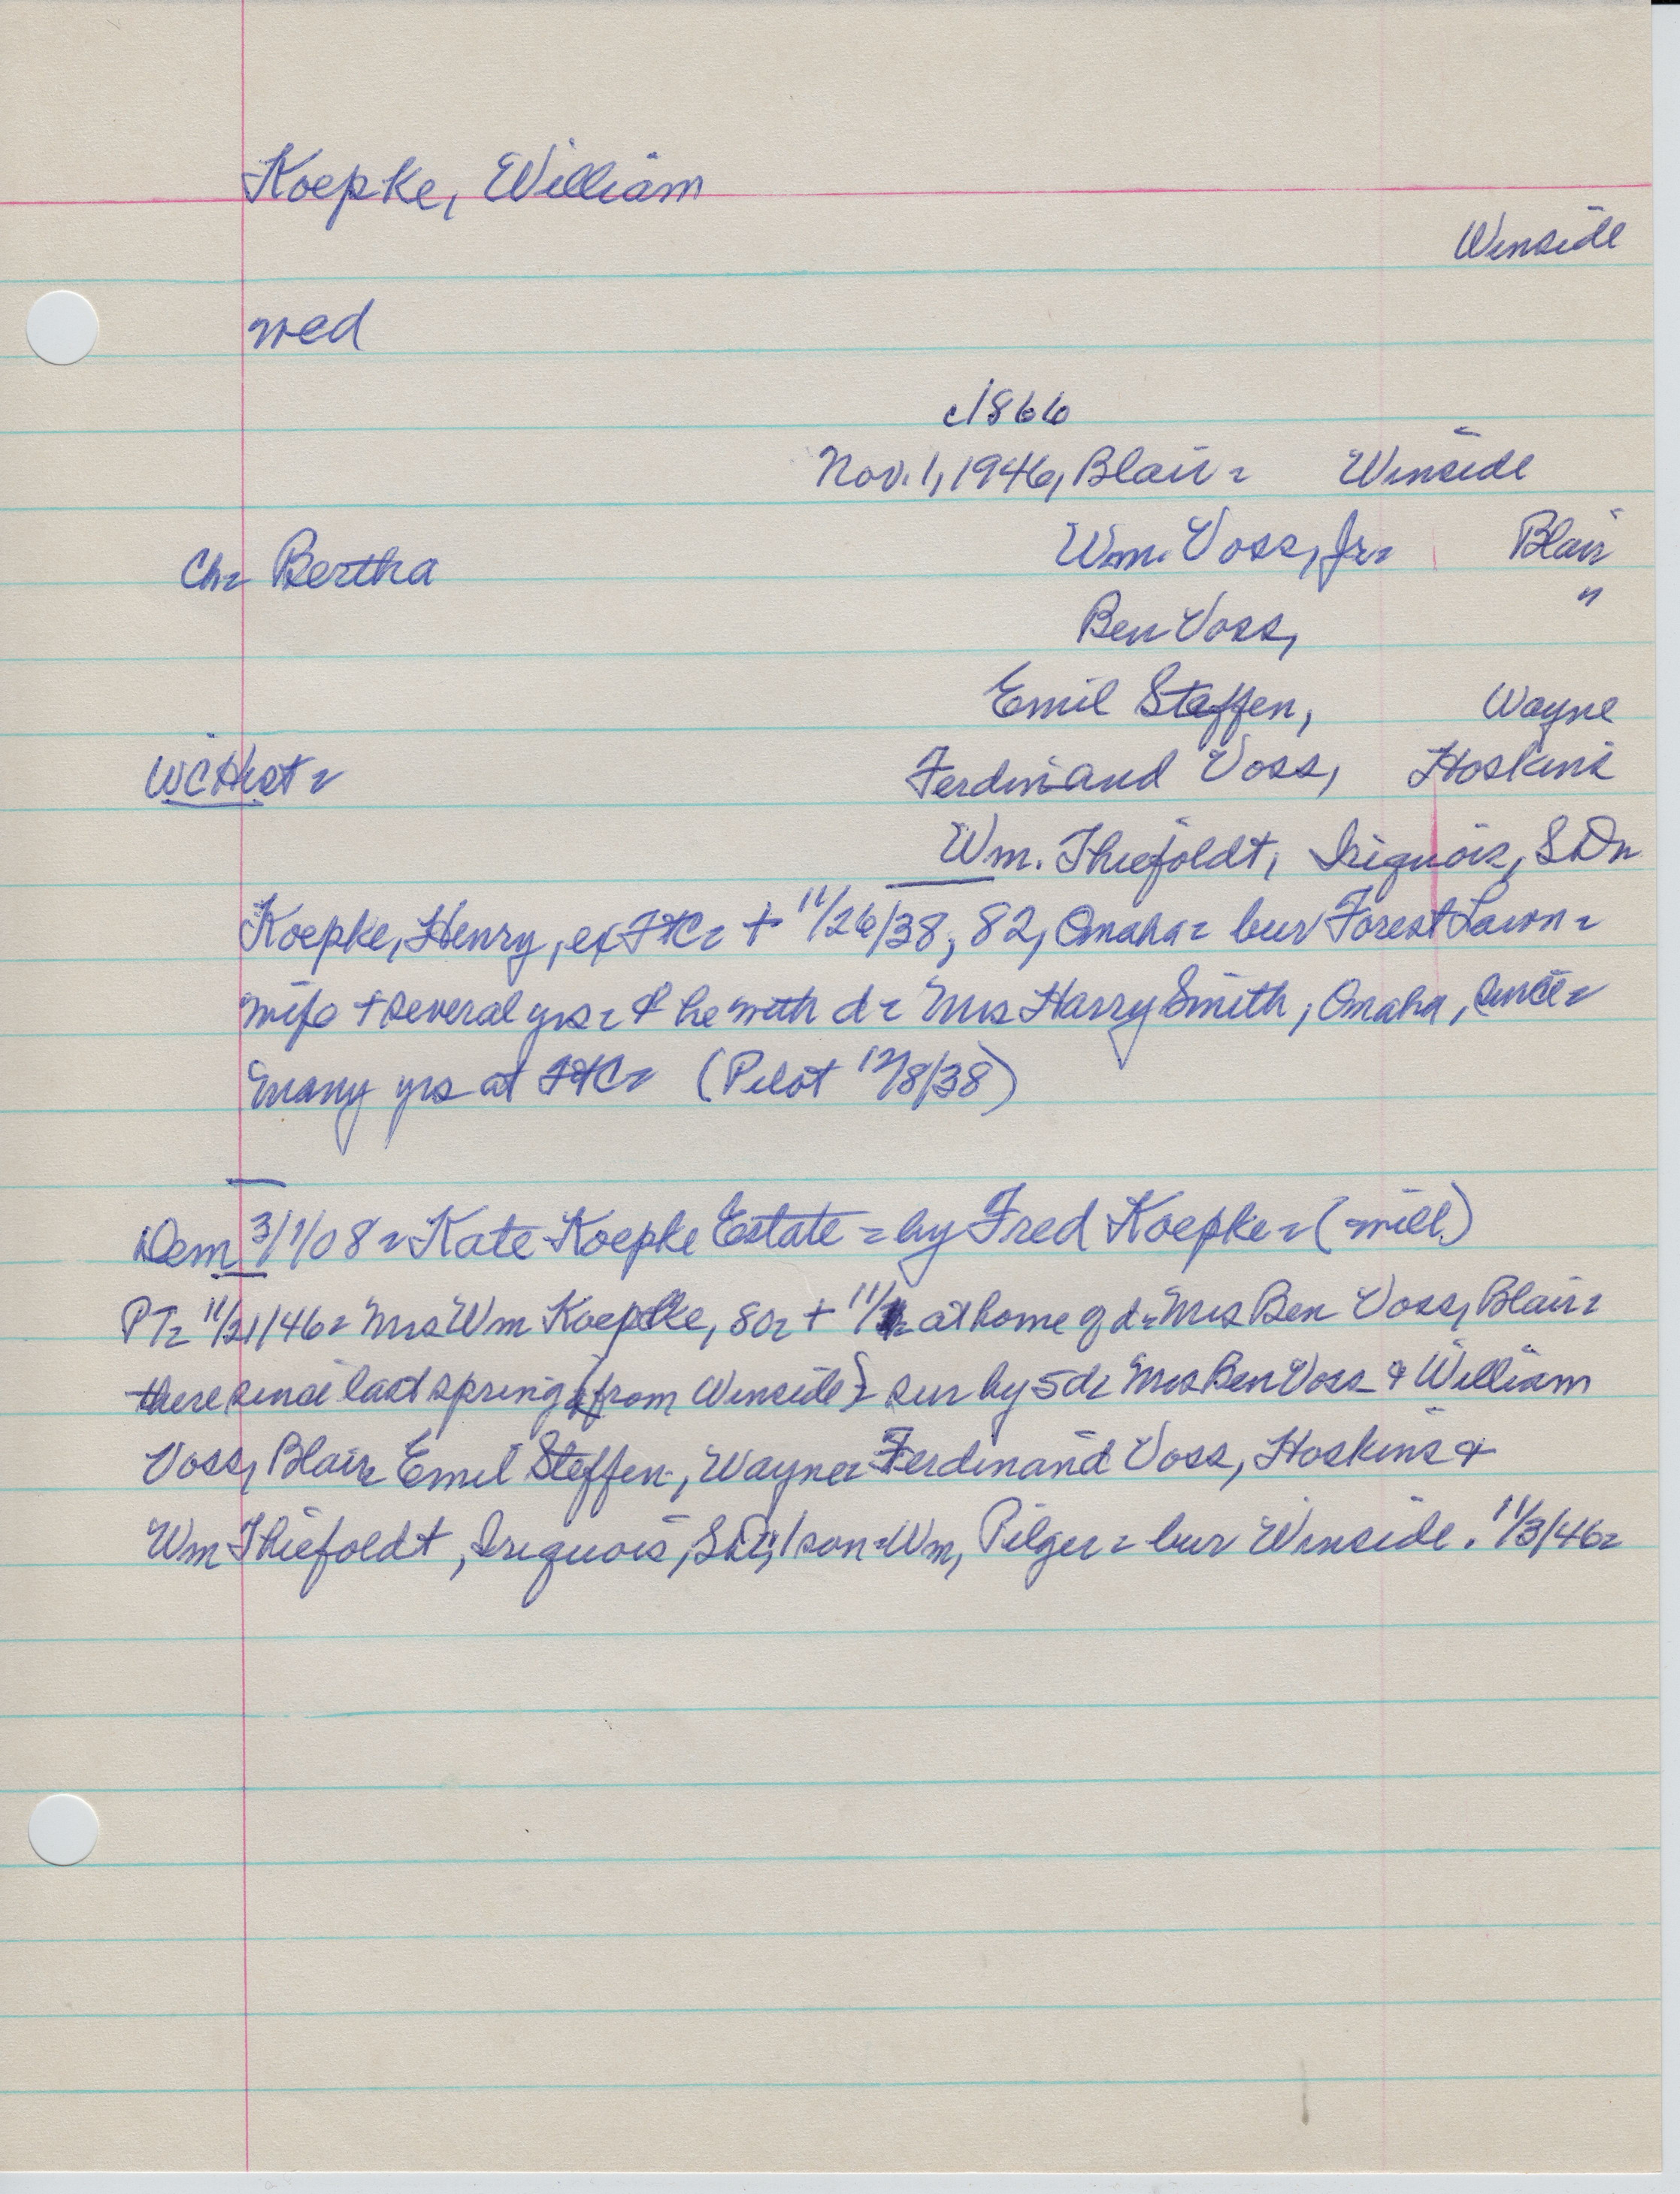 Koepke, William
Winside
wed
c1866
Nov. 1, 1946, Blair = Winside
Wm. Voss, Jr = Blair
Ch = Bertha
Ben Voss, "
Emil Steffen, Wayne
WCHist = Ferdinand Voss, Hoskins
Wm. Thiefoldt, Iriquois, SD =
Koepke, Henry, ex = + 11/26/38, 82, Omaha = bur Forest Lawn =
wife + several yrs = & he with d = Mrs Harry Smith, Omaha, since =
many yrs at (Pilot 12/8/38)
Dem 3/1/08 = Kate Koepke Estate = by Fred Koepke = (will)
PT = 11/21/46 = Mrs Wm Koepke, 80 = + 11/1 = at home of d = Mrs Ben Voss, Blair =
there since last spring (from Winside) = sur by 5 d = Mrs Ben Voss & William
Voss, Blair = Emil Steffen, Wayne = Ferdinand Voss, Hoskins &
Wm Thiefoldt, Iriquois, SD; 1 son = Wm, Pilger = bur Winside. 11/3/46 =